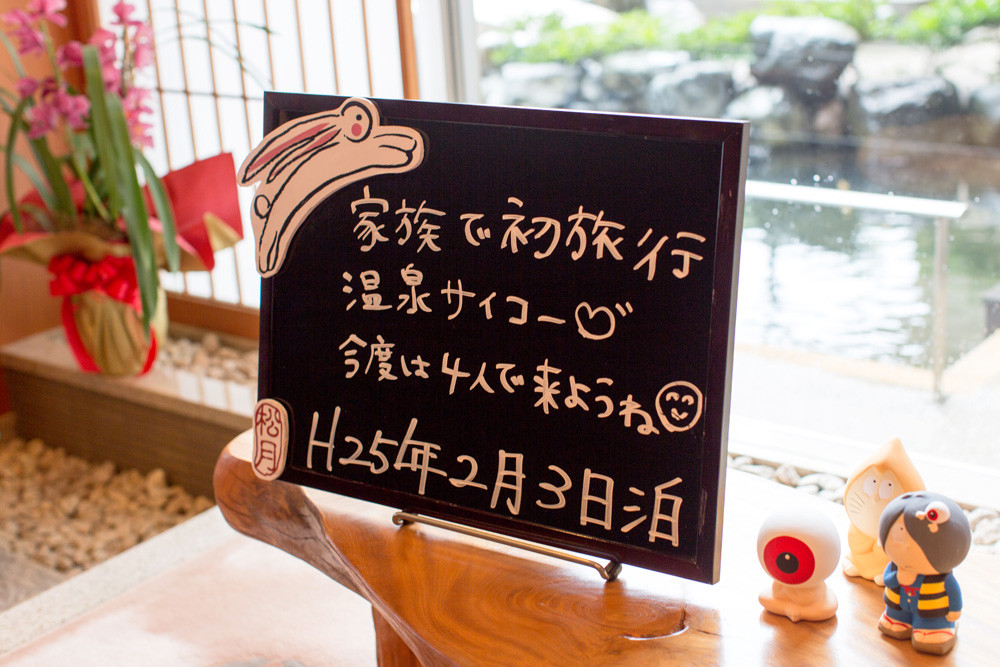 家族で初旅行
温泉サイコー♡
今度は4人で来ようね
H25年2月3日泊
松月